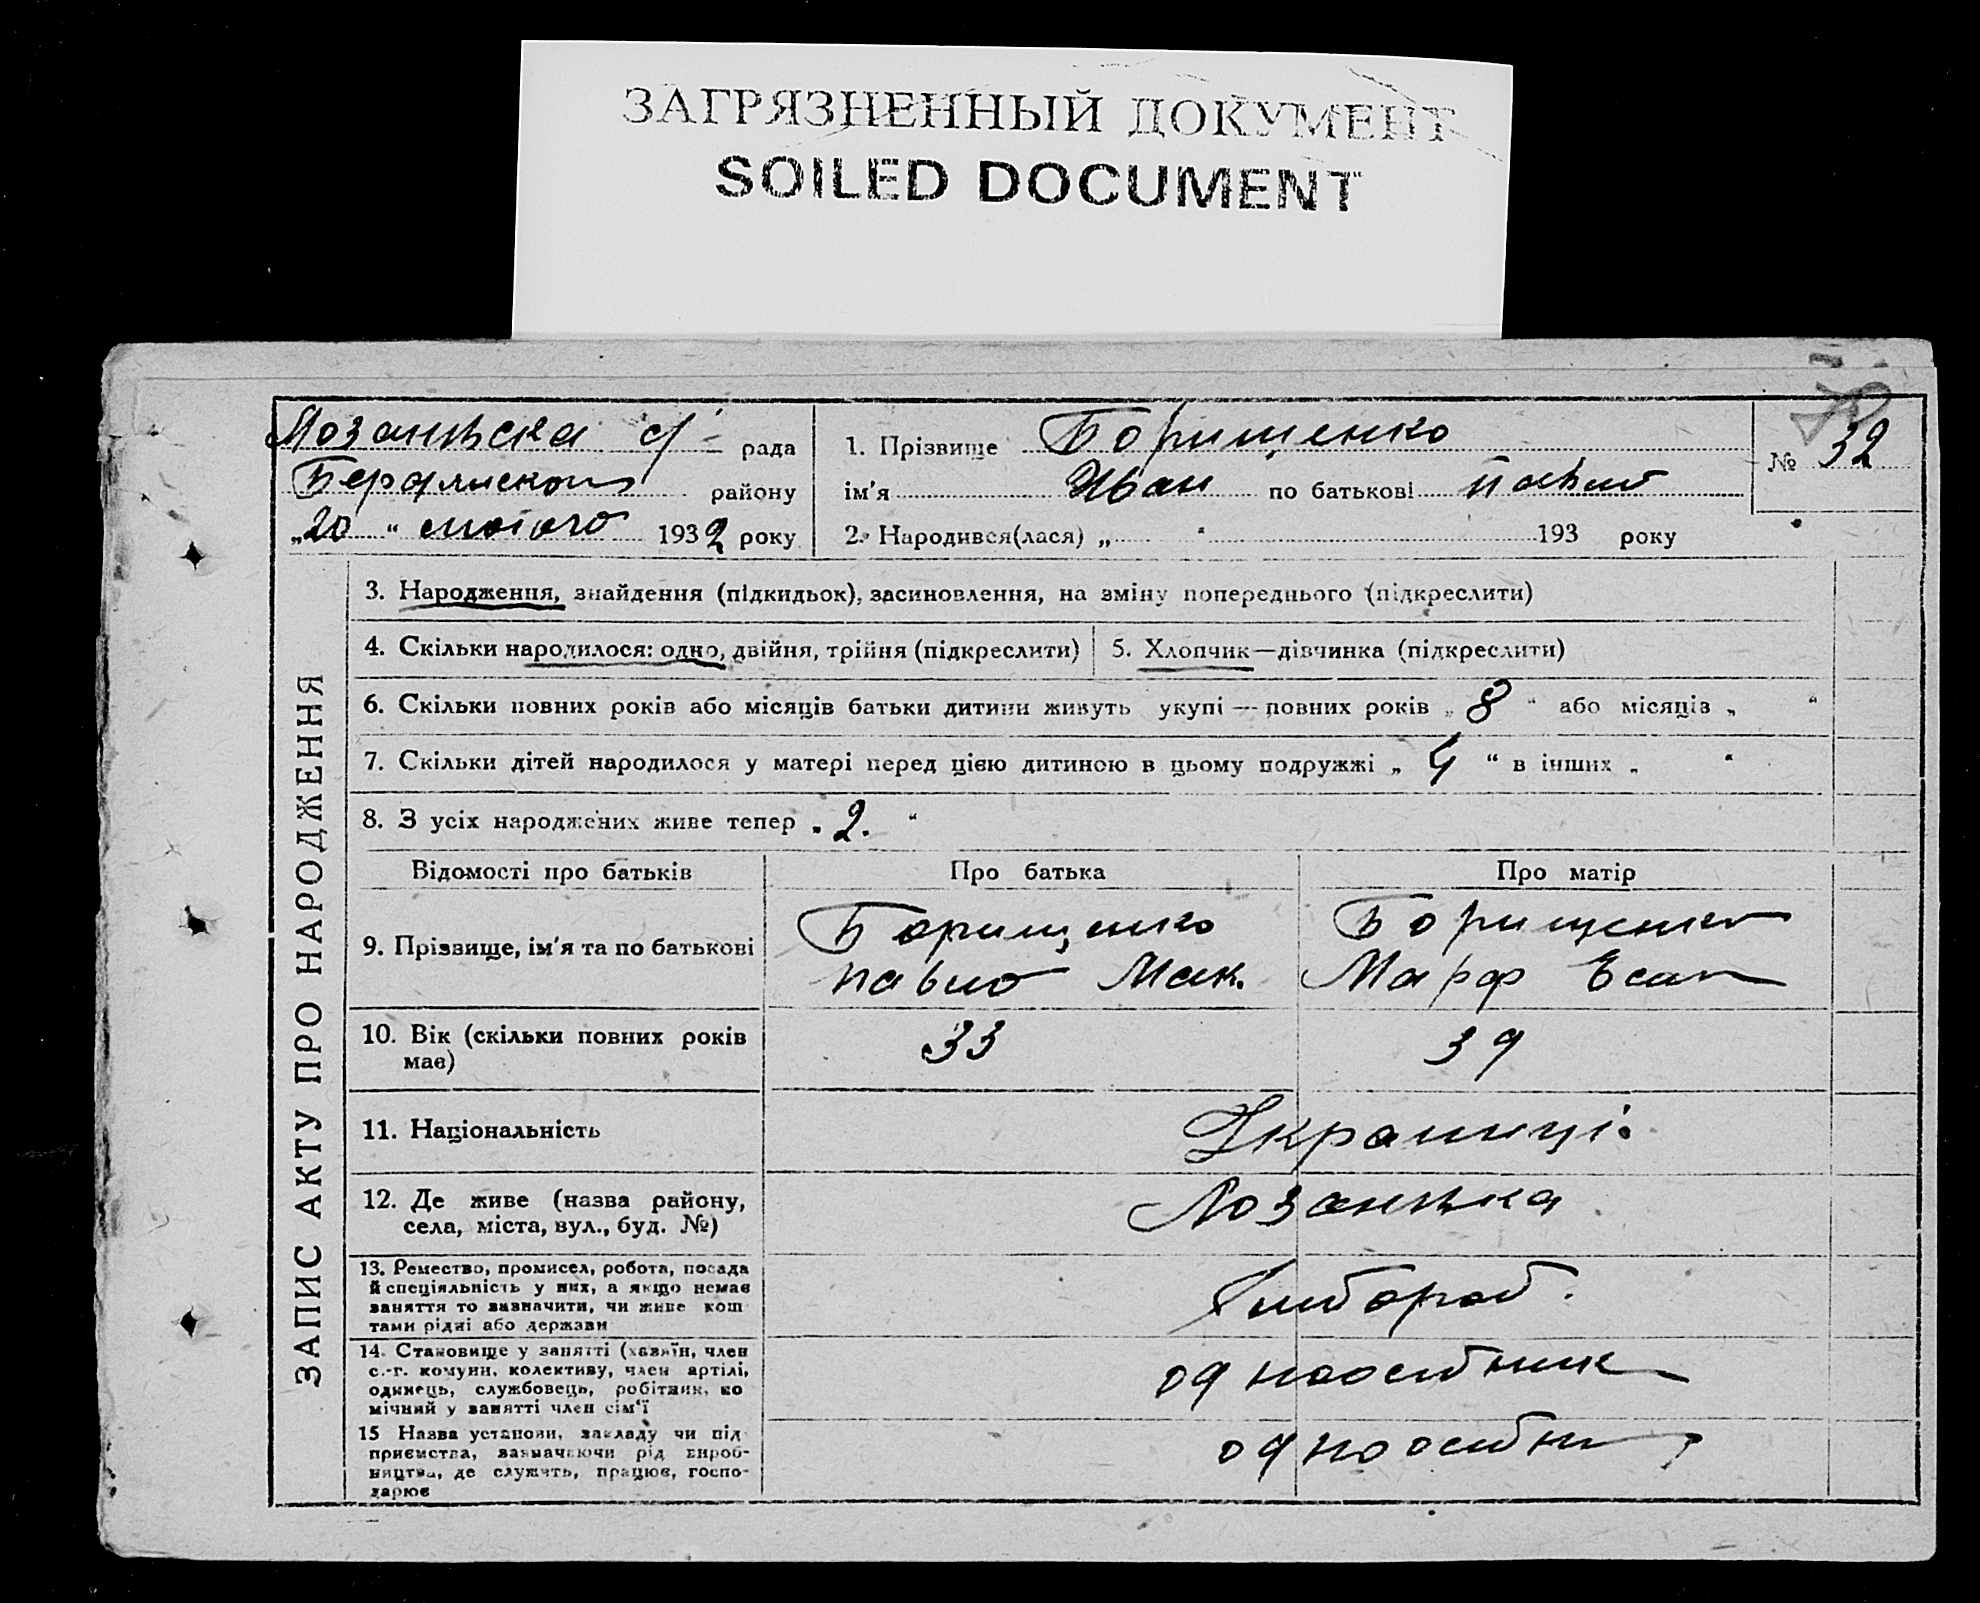 ЗАГРЯЗНЕННЫЙ ДОКУМЕНТ
SOILED DOCUMENT
Лозанівська с/ рада
району
„20 “ лютого 1932 року
1. Прізвище Борищенко
ім'я Иван по батькові Павлов
2. Народився(лася) „ “ 193 року
№ 32
ЗАПИС АКТУ ПРО НАРОДЖЕННЯ
3. Народження, знайдення (підкидьок), засиновлення, на зміну попереднього (підкреслити)
4. Скільки народилося: одно, двійня, трійня (підкреслити)
5. Хлопчик—дівчинка (підкреслити)
6. Скільки повних років або місяців батьки дитини живуть укупі — повних років „ 8 “ або місяців „ “
7. Скільки дітей народилося у матері перед цією дитиною в цьому подружжі „ 4 “ в інших „ “
8. З усіх народжених живе тепер „ 2. “
Відомості про батьків
Про батька
Про матір
9. Прізвище, ім'я та по батькові
Борищенко
Павло Мак.
Борищенко
Марф
10. Вік (скільки повних років
має)
33
39
11. Національність
Украинці.
12. Де живе (назва району,
села, міста, вул., буд. №)
Лозанівка
13. Ремество, промисел, робота, посада
й спеціяльність у них, а якщо немає
заняття то зазначити, чи живе кош
тами рідні або держави
Хлібороб.
14. Становище у занятті (хазяїн, член
с.-г. комуни, колективу, член артілі,
одинець, службовець, робітник, по
мічний у занятті член сім'ї
одноосібник
15 Назва установи, закладу чи під
приємства, зазначаючи рід вироб-
ництва, де служить, працює, госпо-
дарює
одноосібн